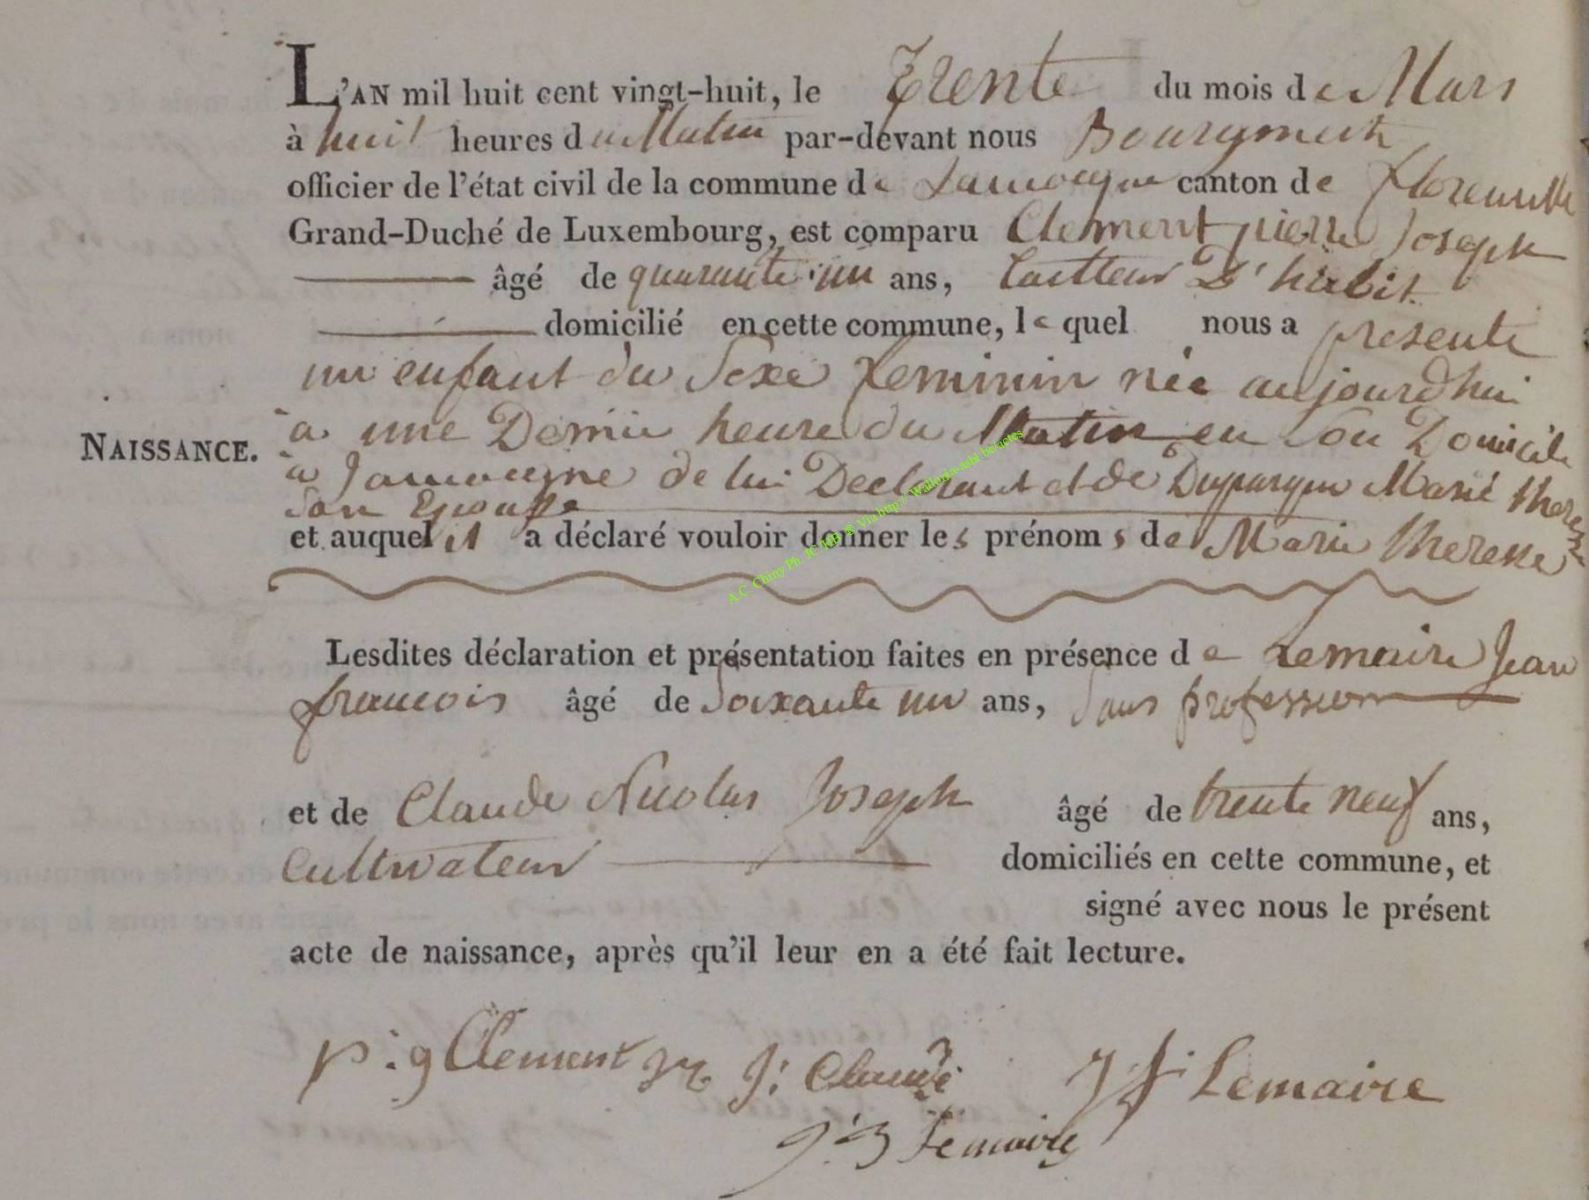 L'AN mil huit cent vingt-huit, le Trente du mois de Mars
à huit heures du Matin par-devant nous
officier de l'état civil de la commune de Jamoigne canton de florenville
Grand-Duché de Luxembourg, est comparu Clement pierre Joseph
âgé de quarante un ans, tailleur D'habit
domicilié en cette commune, lequel nous a presente
un enfant du Sexe feminin née aujourdhui
NAISSANCE.
à une Demie heure du Matin en son Domicile
à Jamoigne de lui Declarant et de Marie therese
Son Epouse
et auquel il a déclaré vouloir donner les prénoms de Marie therese
Lesdites déclaration et présentation faites en présence de Lemaire Jean
francois âgé de Soixante un ans, Sans profession
et de Claude Nicolas Joseph âgé de trente neuf ans,
Cultivateur domiciliés en cette commune, et
signé avec nous le présent
acte de naissance, après qu'il leur en a été fait lecture.
p:j Clement J: Claude Lemaire